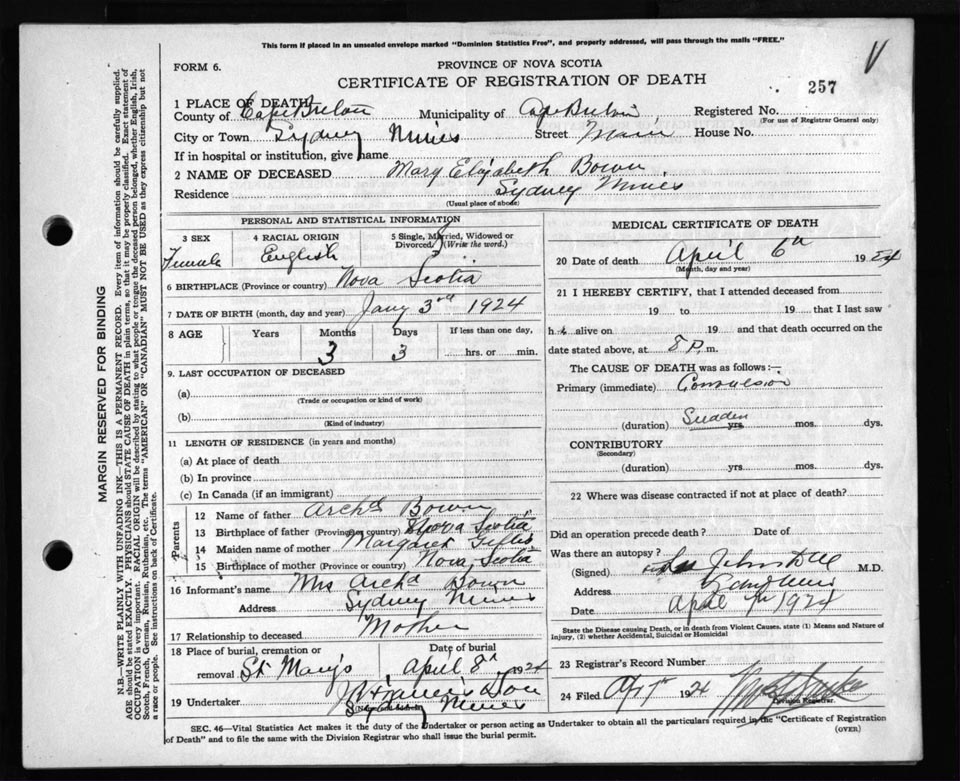 This form if placed in an unsealed envelope marked "Dominion Statistics Free", and properly addressed, will pass through the mails "FREE."
V
FORM 6.
PROVINCE OF NOVA SCOTIA
CERTIFICATE OF REGISTRATION OF DEATH
257
1 PLACE OF DEATH
County of Cape Breton Municipality of Cape Breton Registered No.
(For use of Registrar General only)
City or Town Sydney Mines Street Main House No.
If in hospital or institution, give name
2 NAME OF DECEASED Mary Elizabeth Bown
Residence Sydney Mines
(Usual place of abode)
PERSONAL AND STATISTICAL INFORMATION
3 SEX 4 RACIAL ORIGIN 5 Single, Married, Widowed or Divorced (Write the word.)
Female English S
6 BIRTHPLACE (Province or country) Nova Scotia
7 DATE OF BIRTH (month, day and year) Jany 3rd 1924
8 AGE Years Months Days If less than one day,
3 3 hrs. or min.
9. LAST OCCUPATION OF DECEASED
(a)
(Trade or occupation or kind of work)
(b)
(Kind of industry)
11 LENGTH OF RESIDENCE (in years and months)
(a) At place of death
(b) In province
(c) In Canada (if an immigrant)
Parents
12 Name of father Archd Bown
13 Birthplace of father (Province or country) Nova Scotia
14 Maiden name of mother Margaret
15 Birthplace of mother (Province or country) Nova Scotia
16 Informant's name Mrs Archd Bown
Address Sydney Mines
17 Relationship to deceased Mother
18 Place of burial, cremation or removal St Mary's Date of burial April 8th 1924
19 Undertaker Francis
Sydney Mines
MEDICAL CERTIFICATE OF DEATH
20 Date of death April 6th 1924
(Month, day and year)
21 I HEREBY CERTIFY, that I attended deceased from
19 to 19 that I last saw
h alive on 19 and that death occurred on the
date stated above, at 8 P. m.
The CAUSE OF DEATH was as follows:—
Primary (immediate) Convulsion
Sudden
(duration) yrs. mos. dys.
CONTRIBUTORY
(Secondary)
(duration) yrs. mos. dys.
22 Where was disease contracted if not at place of death?
Did an operation precede death? Date of
Was there an autopsy?
(Signed) M.D.
Address
Date April 7th 1924
State the Disease causing Death, or in death from Violent Causes, state (1) Means and Nature of Injury, (2) whether Accidental, Suicidal or Homicidal
23 Registrar's Record Number
24 Filed Ap 7th 1924
Division Registrar.
SEC. 46—Vital Statistics Act makes it the duty of the Undertaker or person acting as Undertaker to obtain all the particulars required in the "Certificate of Registration
of Death" and to file the same with the Division Registrar who shall issue the burial permit.
(OVER)
MARGIN RESERVED FOR BINDING
N.B.—WRITE PLAINLY WITH UNFADING INK—THIS IS A PERMANENT RECORD. Every item of information should be carefully supplied.
AGE should be stated EXACTLY. PHYSICIANS should STATE CAUSE OF DEATH in plain terms, so that it may be properly classified. Exact statement of
OCCUPATION is very important. RACIAL ORIGIN will be described by stating to what people or tongue the deceased person belonged, whether English, Irish,
Scotch, French, German, Russian, Ruthenian, etc. The terms "AMERICAN" OR "CANADIAN" MUST NOT BE USED as they express citizenship but not
a race or people. See instructions on back of Certificate.